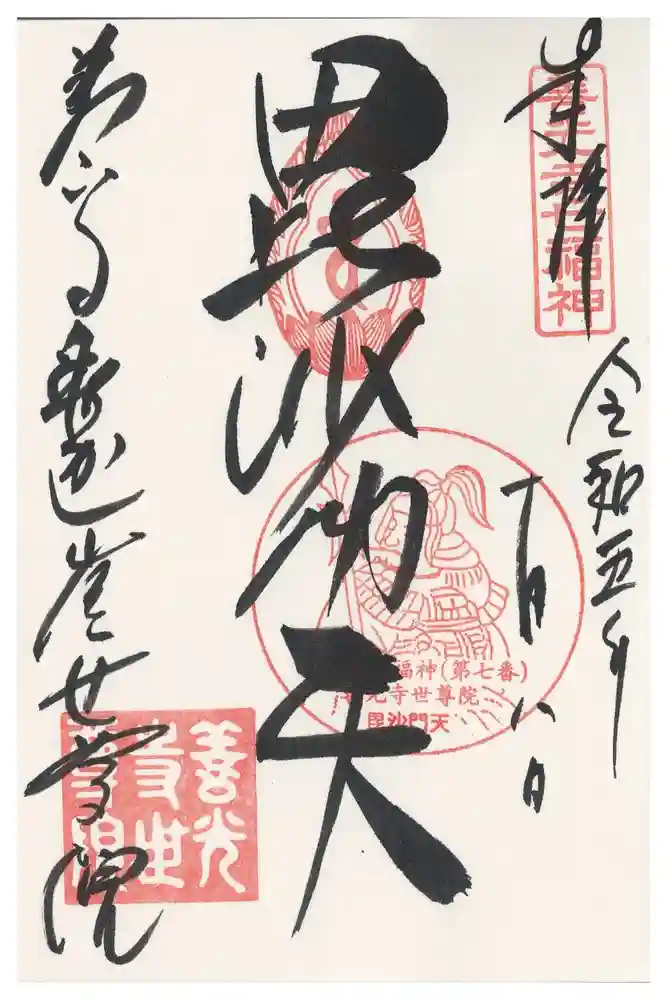 奉拝
善光寺七福神
令和五年
十月八日
毘沙門天
福神(第七番)
光寺世尊院
毘沙門天
善光寺釈迦堂世尊院
善光
寺世
尊院